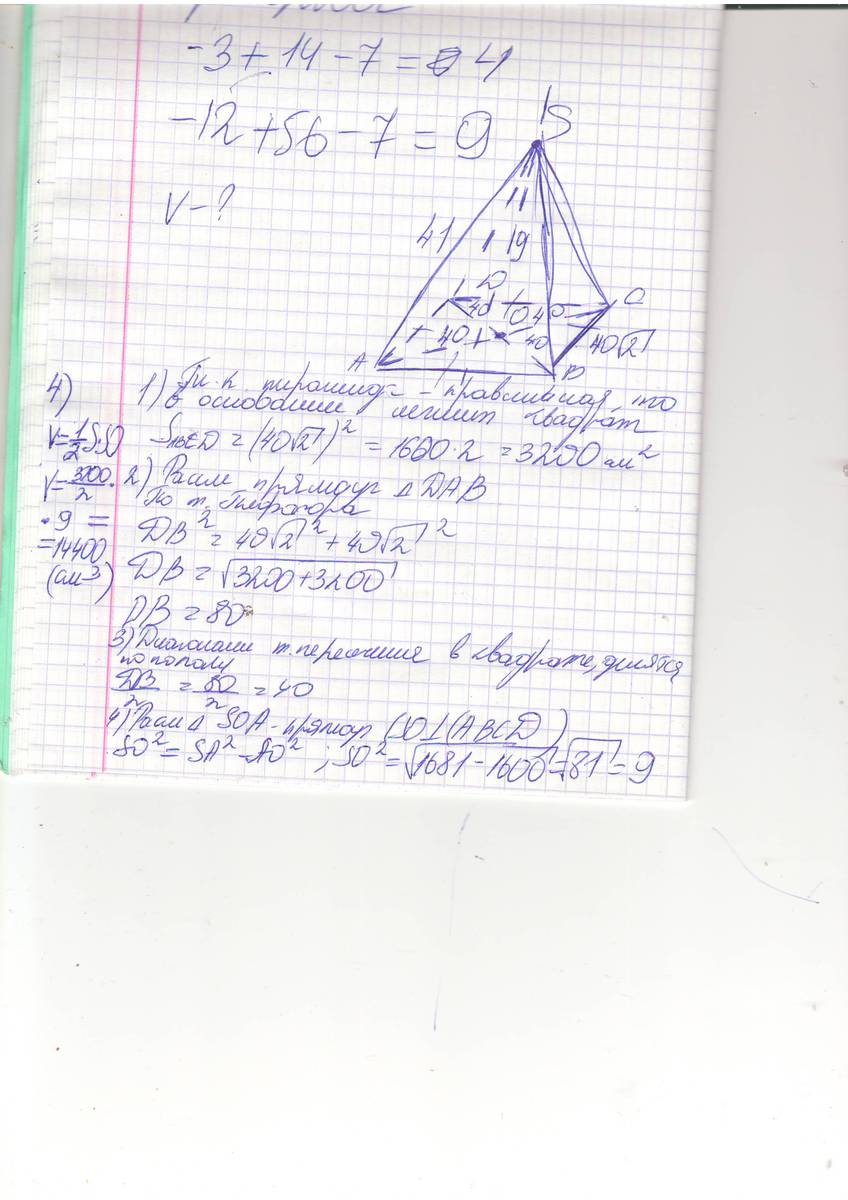 -3 + 14 - 7 = 4
-12 + 56 - 7 = 9
V - ?
S
41
9
D
C
40
O
40
40
40
40√2
A
B
4)
1) Т.к. пирамида - правильная то
в основании лежит квадрат
V=1/2 S·SO
S ABCD = (40√2)² = 1600·2 = 3200 см²
V=3200/2 ·
2) Рассм прямоуг △DAB
По т. Пифагора
·9 =
DB² = 40√2² + 40√2²
=14400
(см³)
DB = √3200+3200
DB = 80
3) Диагонали т. пересечения в квадрате, делятся
пополам
DB/2 = 80/2 = 40
4) Рассм △ SOA - прямоуг (SO⊥(ABCD)
SO² = SA² - AO² ; SO² = √1681 - 1600 = √81 = 9